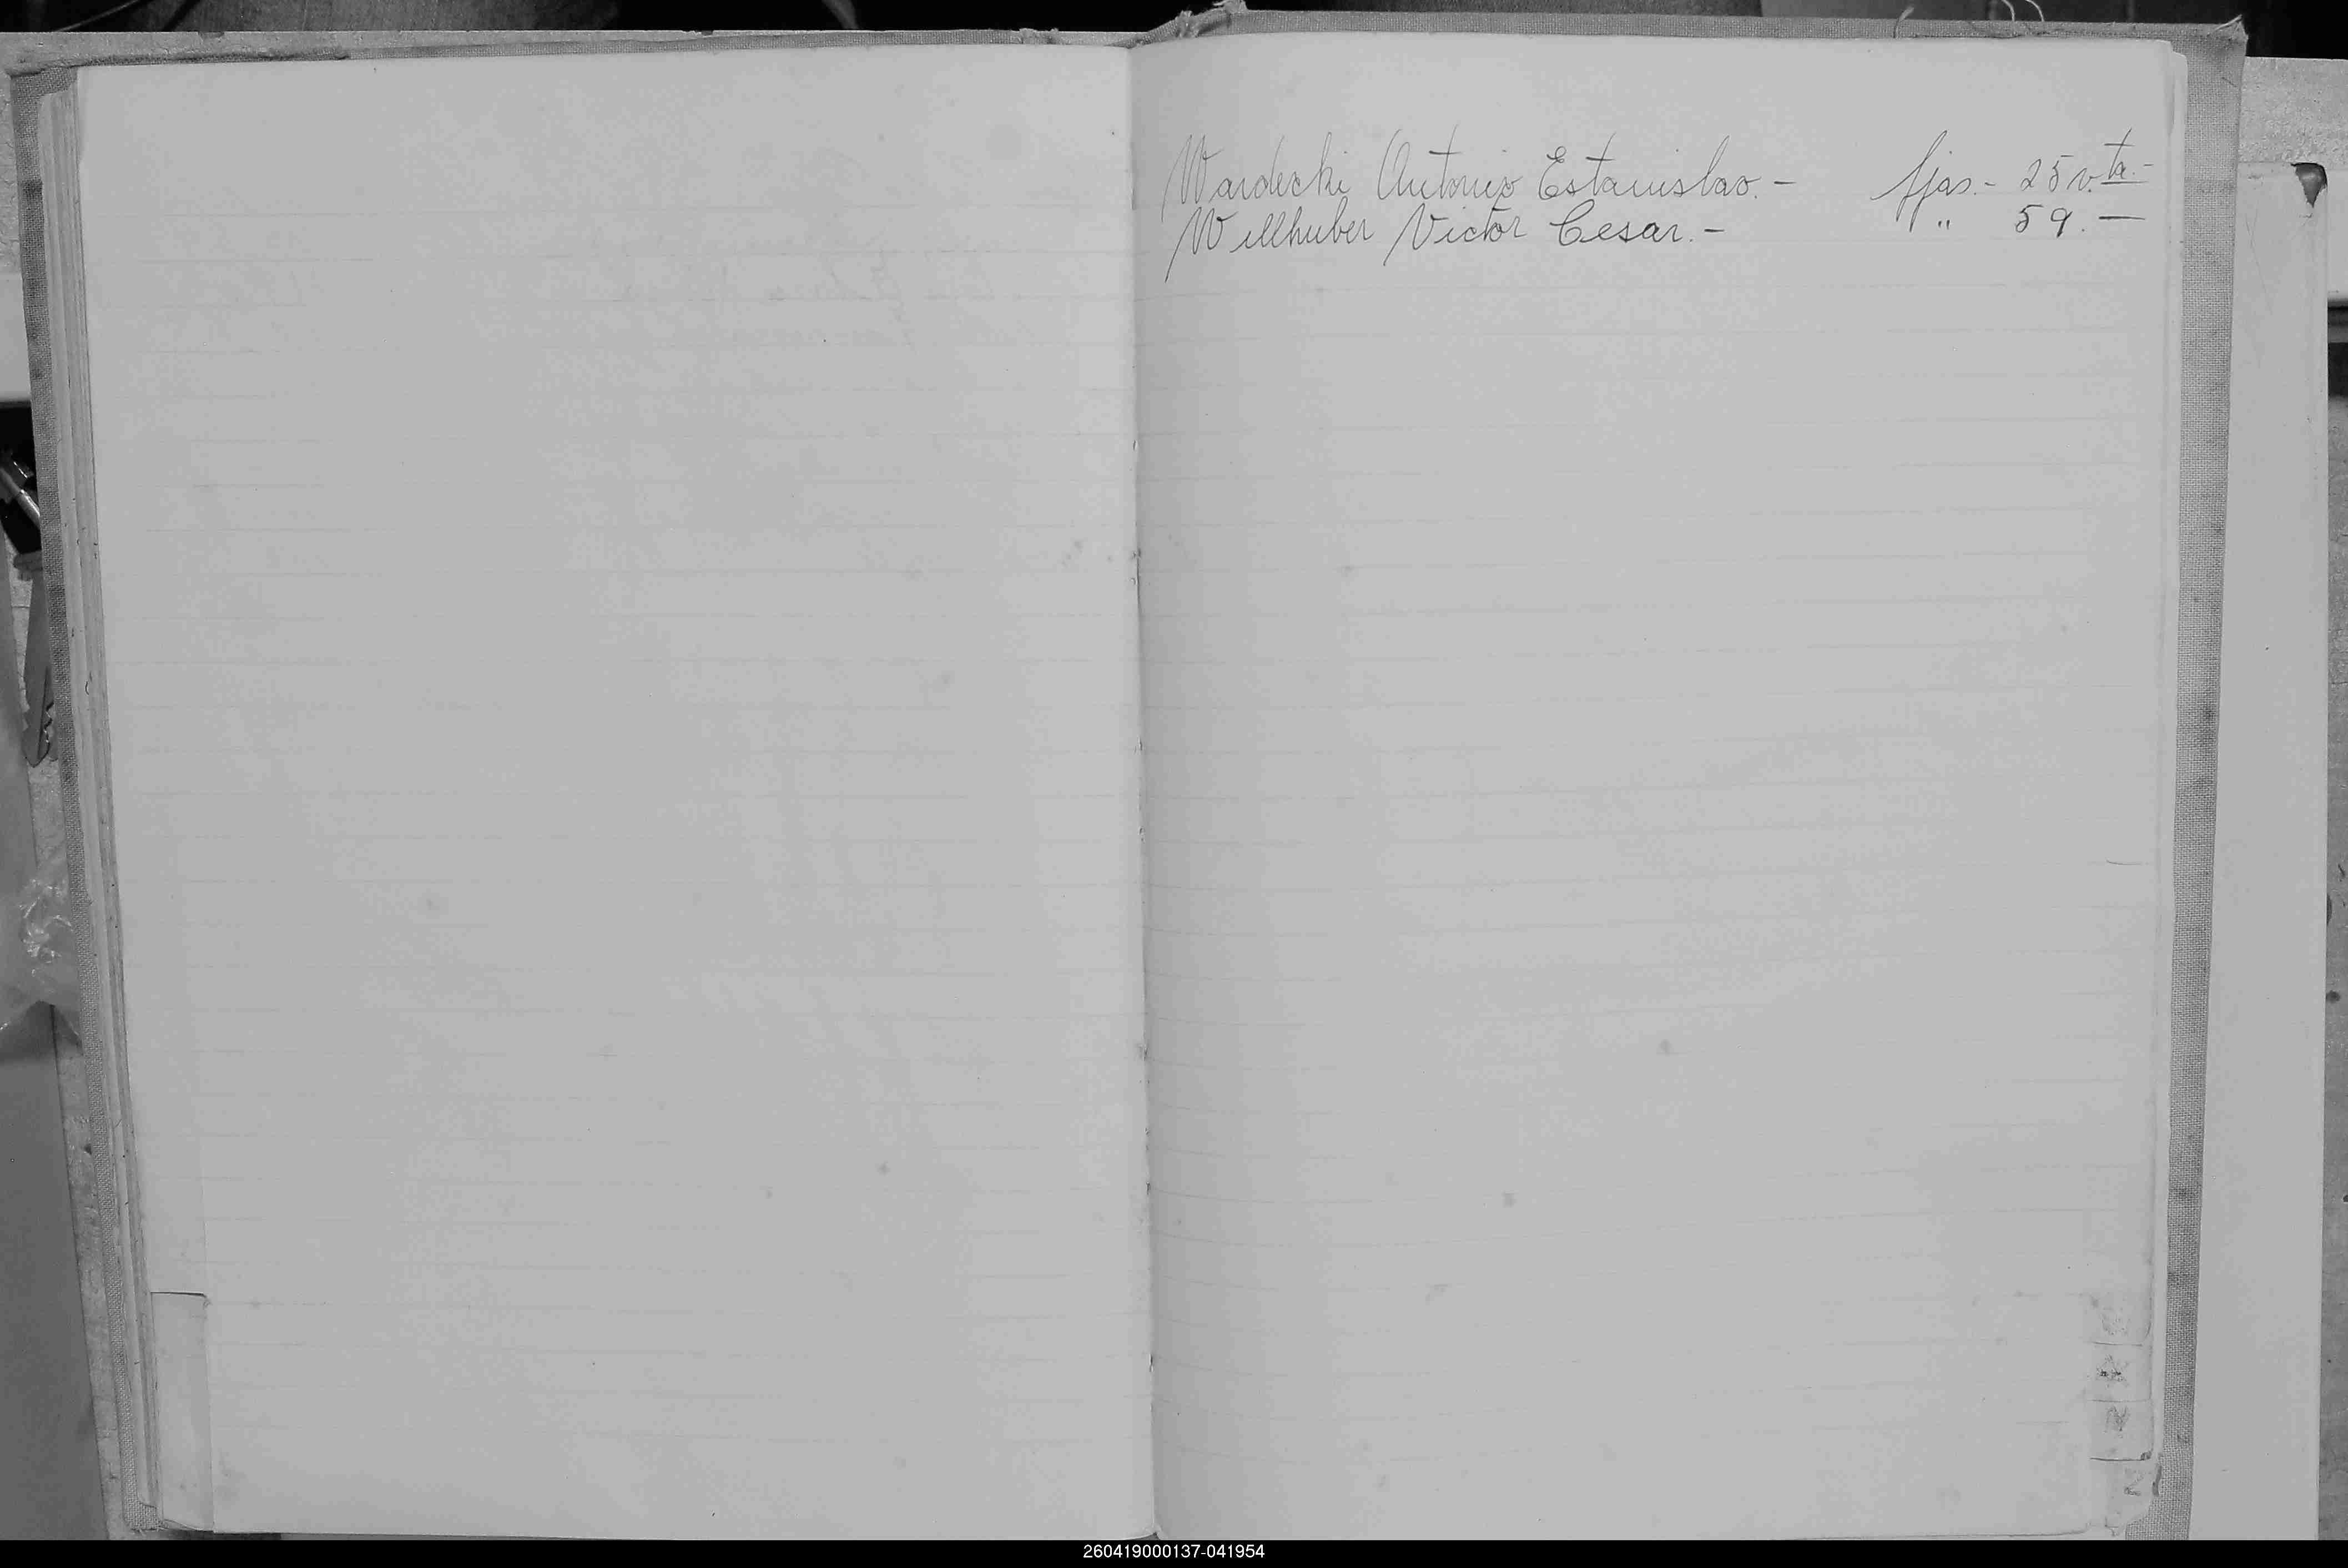 Wardecki Antonio Estanislao.- fjas.- 25 v.ta.-
Willhuber Victor Cesar.- " 59.—
Z
260419000137-041954